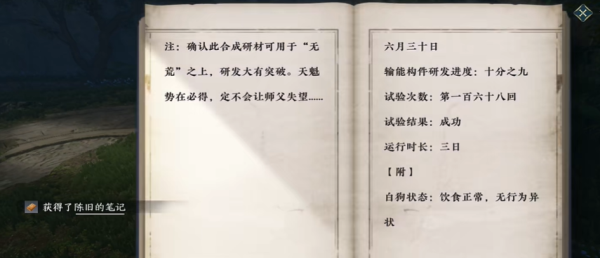 注：确认此合成研材可用于“无
荒”之上，研发大有突破。天魁
势在必得，定不会让师父失望……
六月三十日
输能构件研发进度：十分之九
试验次数：第一百六十八回
试验结果：成功
运行时长：三日
【附】
白狗状态：饮食正常，无行为异
状
获得了陈旧的笔记